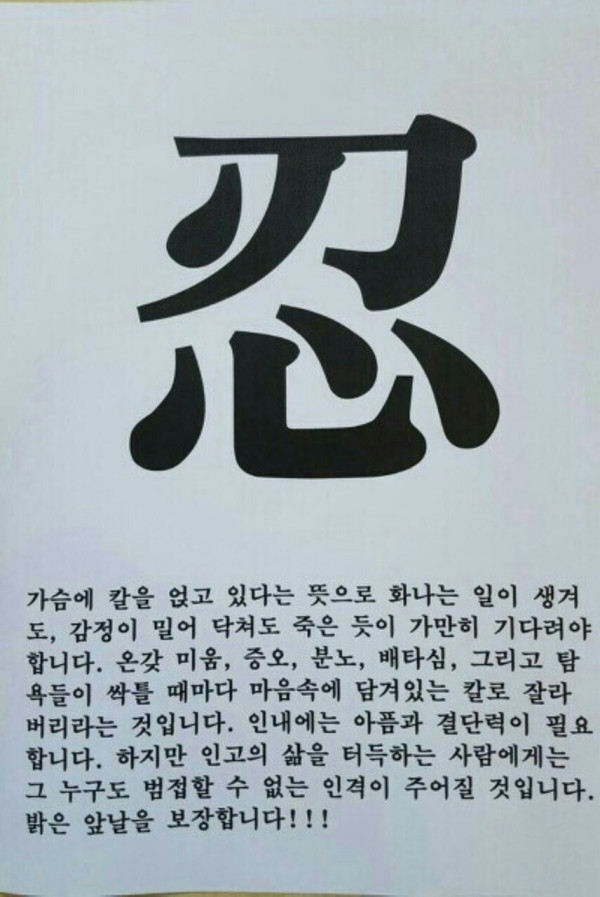 忍
가슴에 칼을 얹고 있다는 뜻으로 화나는 일이 생겨
도, 감정이 밀어 닥쳐도 죽은 듯이 가만히 기다려야
합니다. 온갖 미움, 증오, 분노, 배타심, 그리고 탐
욕들이 싹틀 때마다 마음속에 담겨있는 칼로 잘라
버리라는 것입니다. 인내에는 아픔과 결단력이 필요
합니다. 하지만 인고의 삶을 터득하는 사람에게는
그 누구도 범접할 수 없는 인격이 주어질 것입니다.
밝은 앞날을 보장합니다!!!